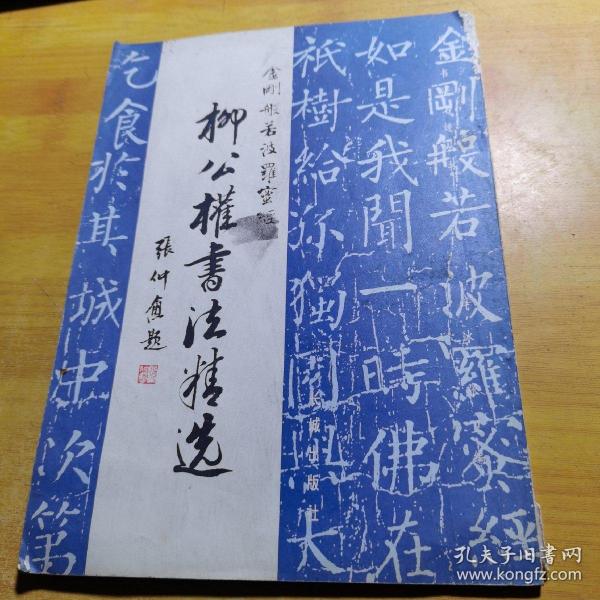 金剛般若波羅蜜經
如是我聞一時佛在
祇樹給孤獨園與大
長城出版社
金剛般若波羅蜜經
柳公權書法精选
張仲愈題
乞食於其城中次第
孔夫子旧书网
www.kongfz.com